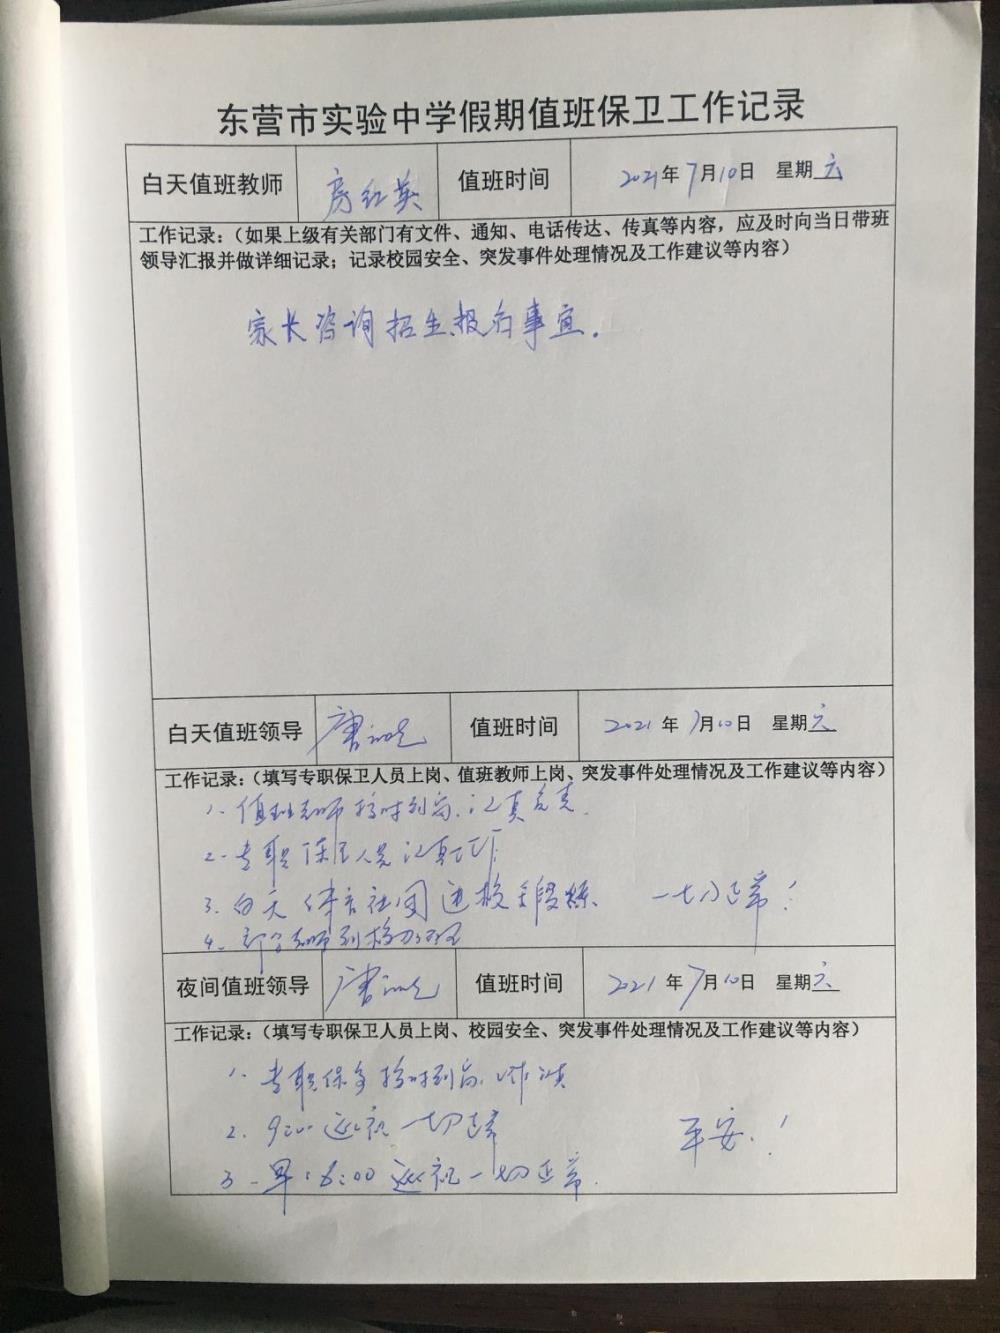 东营市实验中学假期值班保卫工作记录
白天值班教师 房红英 值班时间 2021年7月10日 星期六
工作记录：（如果上级有关部门有文件、通知、电话传达、传真等内容，应及时向当日带班
领导汇报并做详细记录；记录校园安全、突发事件处理情况及工作建议等内容）
家长咨询招生报名事宜.
白天值班领导 唐 值班时间 2021年7月10日 星期六
工作记录：（填写专职保卫人员上岗、值班教师上岗、突发事件处理情况及工作建议等内容）
1. 值班老师按时到岗.认真负责.
2. 专职保卫人员认真工作
3. 白天体育社团进校锻炼 一切正常！
4. 部分老师到校办理
夜间值班领导 唐 值班时间 2021年7月10日 星期六
工作记录：（填写专职保卫人员上岗、校园安全、突发事件处理情况及工作建议等内容）
1. 专职保安按时到岗
2. 9:00 巡视一切正常 平安.！
3. 早:6:00 巡视一切正常.